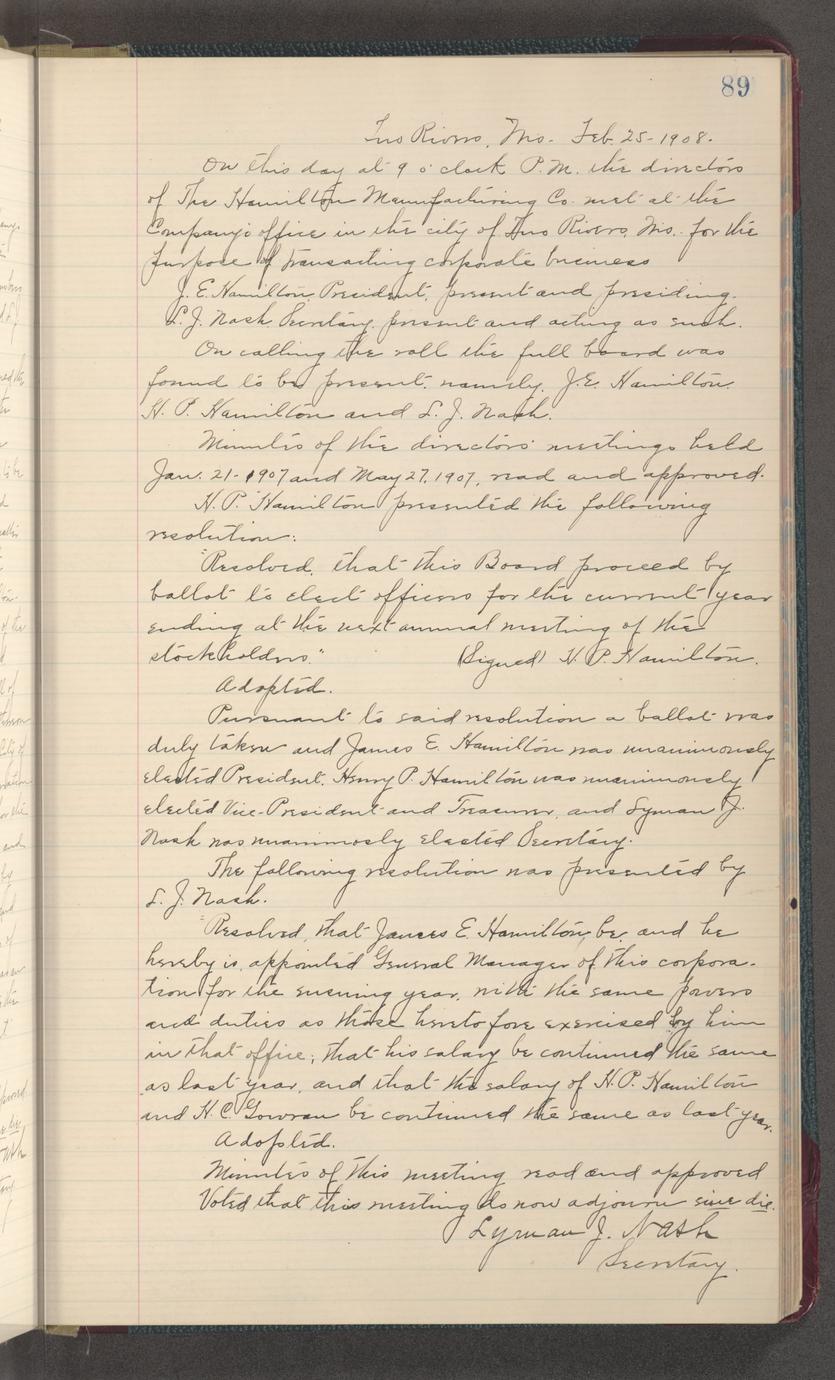 89
Two Rivers, Wis. Feb. 25-1908.
On this day at 9 o'clock P.M. the directors
of The Hamilton Manufacturing Co. met at the
Company's office in the city of Two Rivers, Wis. for the
purpose of transacting corporate business
J. E. Hamilton, President, present and presiding.
L. J. Nash, Secretary, present and acting as such.
On calling the roll the full board was
found to be present, namely, J. E. Hamilton,
H. P. Hamilton and L. J. Nash.
Minutes of the directors' meetings held
Jan. 21-1907 and May 27, 1907, read and approved.
H. P. Hamilton presented the following
resolution:
"Resolved, that this Board proceed by
ballot to elect officers for the current year
ending at the next annual meeting of the
stockholders." (Signed) H. P. Hamilton.
Adopted.
Pursuant to said resolution a ballot was
duly taken and James E. Hamilton was unanimously
elected President, Henry P. Hamilton was unanimously
elected Vice-President and Treasurer, and Lyman J.
Nash was unanimosly elected Secretary.
The following resolution was presented by
L. J. Nash.
"Resolved, that James E. Hamilton, be, and he
hereby is, appointed General Manager of this corpora-
tion for the ensuing year, with the same powers
and duties as those heretofore exercised by him
in that office; that his salary be continued the same
as last year, and that the salary of H. P. Hamilton
and H. C. Gowran be continued the same as last year.
Adopted.
Minutes of this meeting read and approved
Voted that this meeting do now adjourn sine die.
Lyman J. Nash
Secretary.